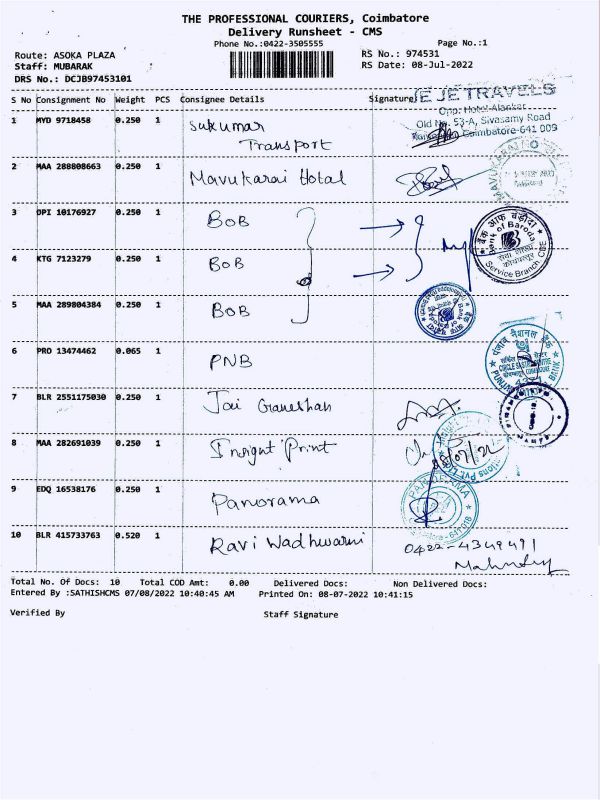 THE PROFESSIONAL COURIERS, Coimbatore
Delivery Runsheet - CMS
Phone No.:0422-3505555
Page No.:1
Route: ASOKA PLAZA
RS No.: 974531
Staff: MUBARAK
RS Date: 08-Jul-2022
DRS No.: DCJB97453101
S No Consignment No Weight PCS Consignee Details Signature
JE JE TRAVELS
Opp. Hotel Alankar
Old No. 53-A, Sivasamy Road
Coimbatore-641 009
1 MYD 9718458 0.250 1 Sukumar
Transport
2 MAA 288808663 0.250 1 Mavukarai Hotal
3 OPI 10176927 0.250 1 BOB
बैंक ऑफ़ बड़ौदा
Bank of Baroda
सेवा शाखा
कोयम्बत्तूर
Service Branch, CBE
4 KTG 7123279 0.250 1 BOB
5 MAA 289804384 0.250 1 BOB
6 PRO 13474462 0.065 1 PNB
पंजाब नैशनल बैंक
PUNJAB NATIONAL BANK
7 BLR 2551175030 0.250 1 Jai Ganeshan
8 MAA 282691039 0.250 1 Insignt Print
08/07/22
9 EDQ 16538176 0.250 1 Panorama
PANORAMA
10 BLR 415733763 0.520 1 Ravi Wadhwarni
0422-4349491
Total No. Of Docs: 10 Total COD Amt: 0.00 Delivered Docs: Non Delivered Docs:
Entered By :SATHISHCMS 07/08/2022 10:40:45 AM Printed On: 08-07-2022 10:41:15
Verified By Staff Signature